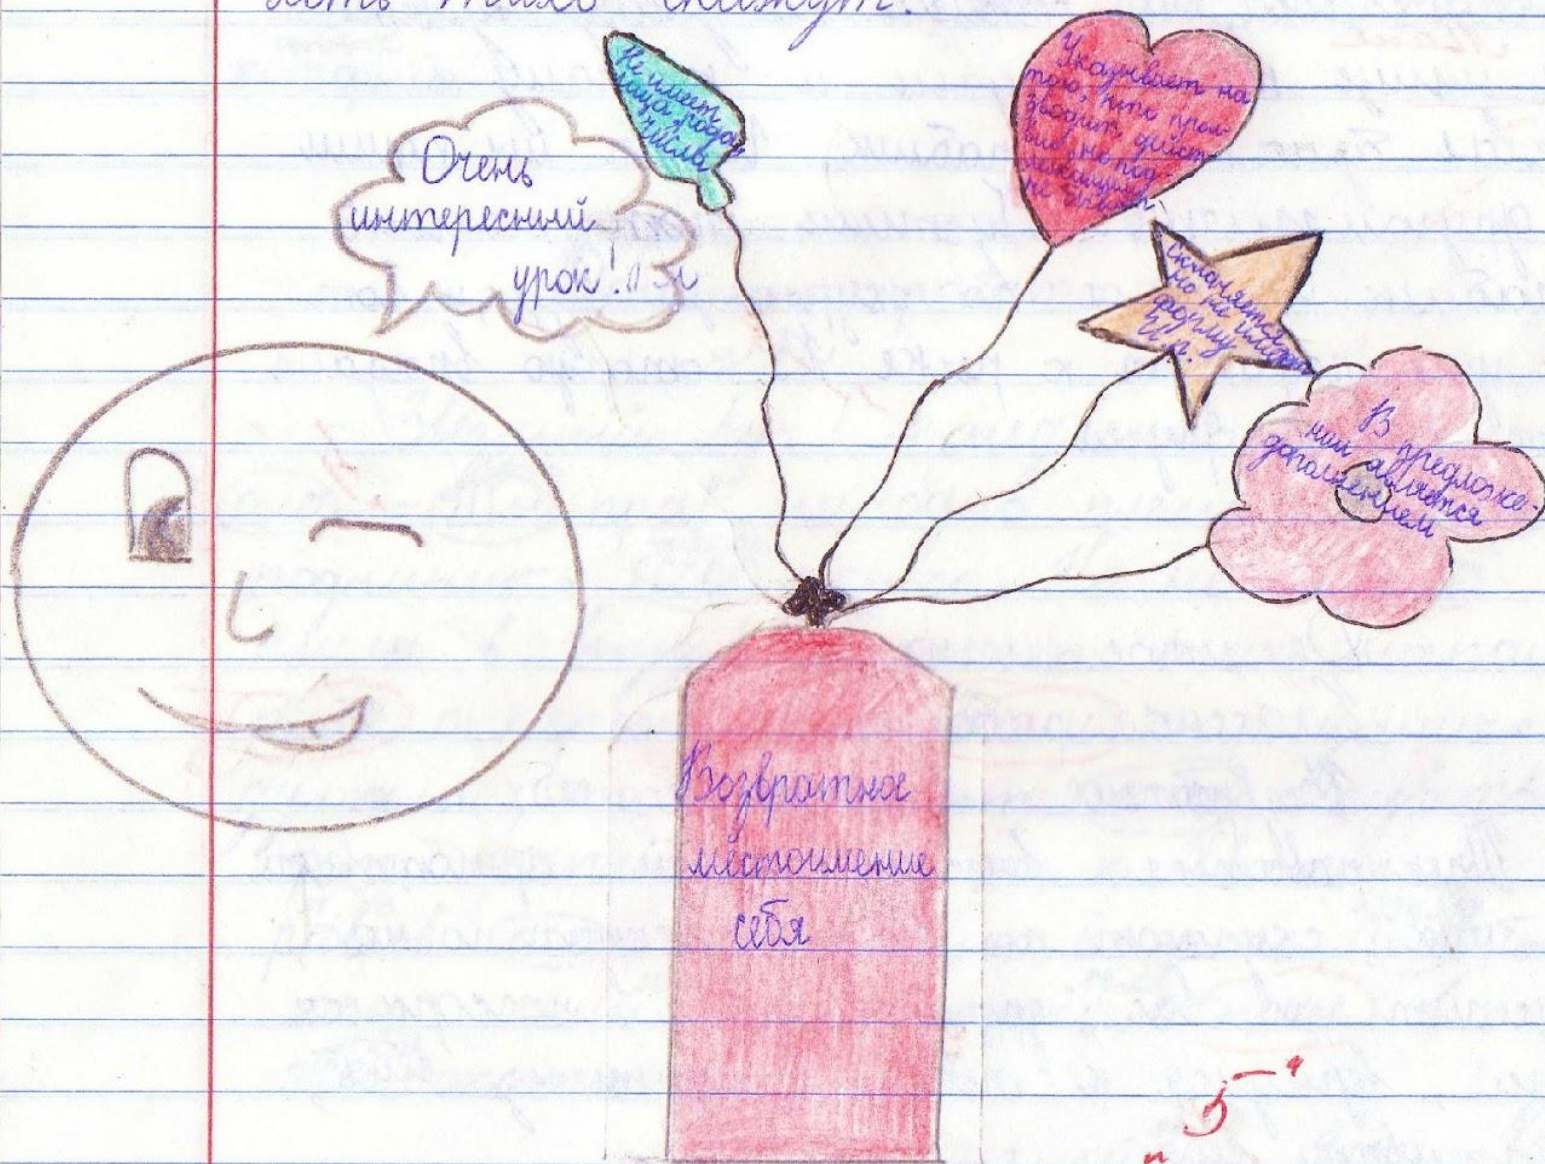 тихо скажут.
Очень
интересный
урок!
Не имеет
лица, рода,
числа
Указывает на
того, кто произ-
водит дейст-
вие, но под-
лежащим
не бывает
Склоняется,
но не имеет
форму
И.п.
В
предложе-
нии является
дополнением
Возвратное
местоимение
себя
5